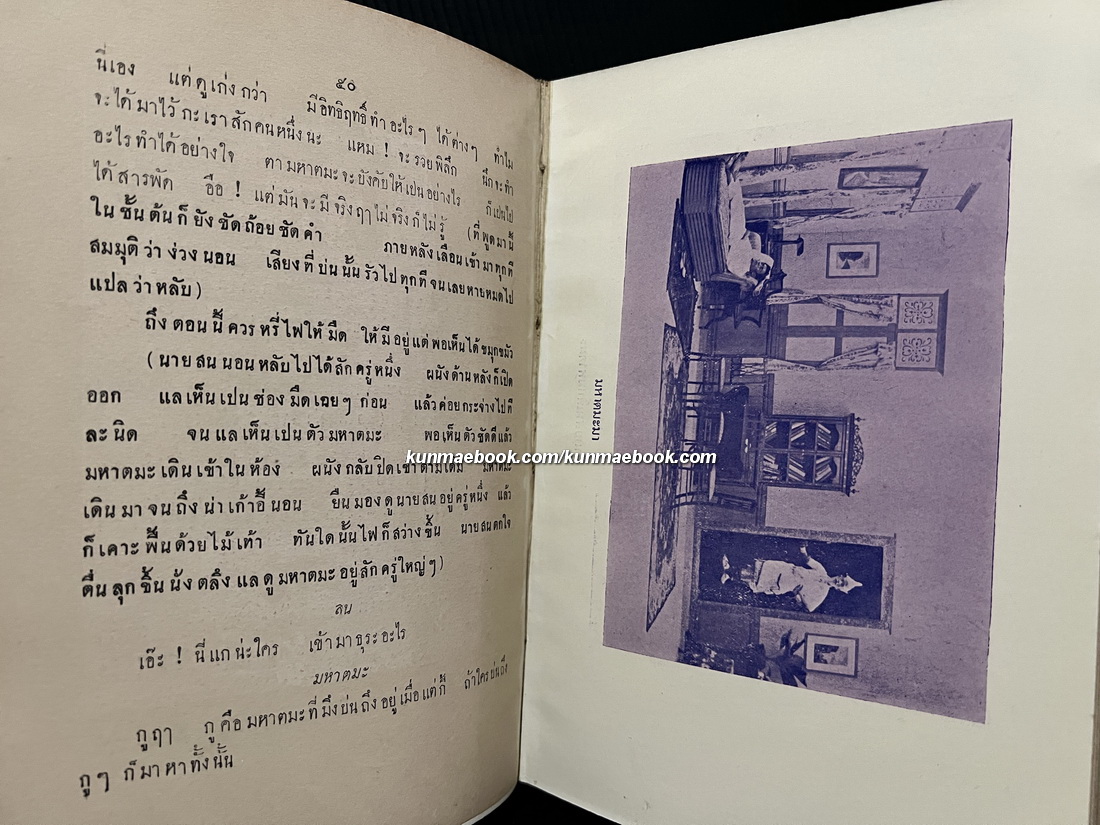 ๕๐
นี่เอง แต่ดูเก่งกว่า มีอิทธิฤทธิ์ทำอะไรๆ ได้ต่างๆ ทำไม
จะได้มาไว้กะเราสักคนหนึ่งนะ แหม ! จะรวยพิลึก นึกจะทำ
อะไรทำได้อย่างใจ ตามหาตมะจะบังคับให้เปนอย่างไร ก็เปนไป
ได้สารพัด อือ ! แต่มันจะมีจริงฤๅไม่จริงก็ไม่รู้ (ที่พูดมานี้
ในชั้นต้นก็ยังชัดถ้อยชัดคำ ภายหลังเลือนเข้ามาทุกที
สมมุติว่าง่วงนอน เสียงที่บ่นนั้นรัวไปทุกทีจนเลยหายหมดไป
แปลว่าหลับ)
ถึงตอนนี้ควรหรี่ไฟให้มืด ให้มีอยู่แต่พอเห็นได้ขมุกขมัว
(นายสนนอนหลับไปได้สักครู่หนึ่ง ผนังด้านหลังก็เปิด
ออก แลเห็นเปนช่องมืดเฉยๆ ก่อน แล้วค่อยกระจ่างไปที
ละนิด จนแลเห็นเปนตัวมหาตมะ พอเห็นตัวชัดดีแล้ว
มหาตมะเดินเข้าในห้อง ผนังกลับปิดเข้าตามเดิม มหาตมะ
เดินมาจนถึงน่าเก้าอี้นอน ยืนมองดูนายสนอยู่ครู่หนึ่ง แล้ว
ก็เคาะพื้นด้วยไม้เท้า ทันใดนั้นไฟก็สว่างขึ้น นายสนตกใจ
ตื่นลุกขึ้นนั่งตลึง แลดูมหาตมะอยู่สักครู่ใหญ่ๆ)
สน
เอ๊ะ ! นี่แกน่ะใคร เข้ามาธุระอะไร
มหาตมะ
กูฤๅ กูคือมหาตมะที่มึงบ่นถึงอยู่เมื่อแต่กี้ ถ้าใครบ่นถึง
กูๆ ก็มาหาทั้งนั้น
มหาตมะมา
kunmaebook.com/kunmaebook.com